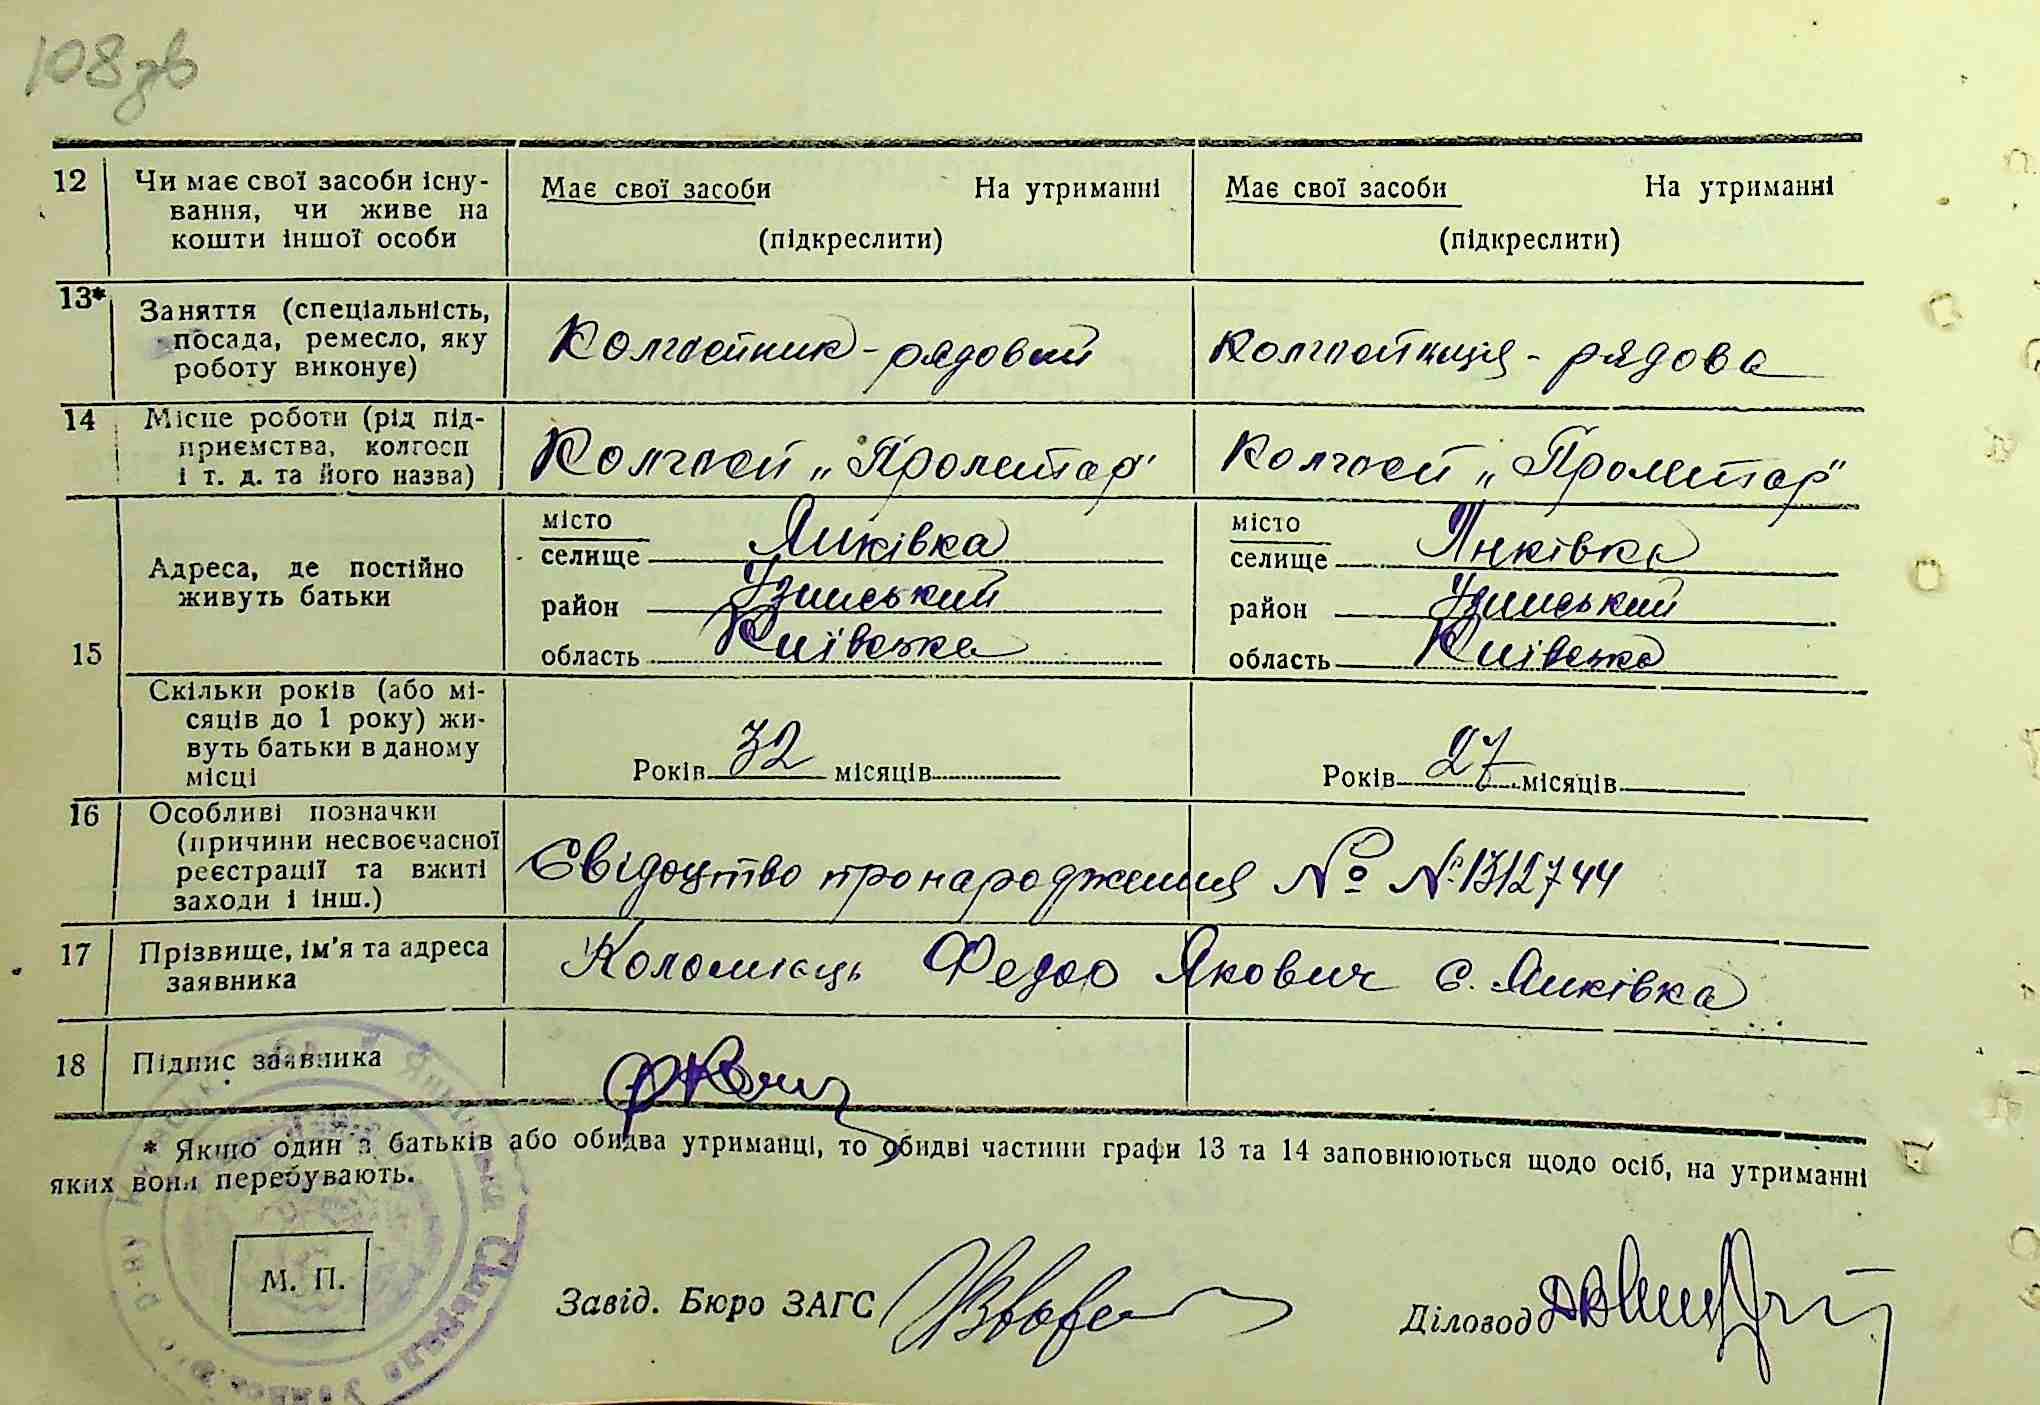 108 зв
12 Чи має свої засоби існу-
вання, чи живе на
кошти іншої особи
Має свої засоби На утриманні
(підкреслити)
Має свої засоби На утриманні
(підкреслити)
13* Заняття (спеціальність,
посада, ремесло, яку
роботу виконує)
Колгоспник - рядовий
колгоспниця - рядова
14 Місце роботи (рід під-
приємства, колгосп
і т. д. та його назва)
Колгосп „Пролетар"
Колгосп „Пролетар"
15
Адреса, де постійно
живуть батьки
місто
селище Янківка
район Узинський
область Київська
місто
селище Янківка
район Узинський
область Київська
Скільки років (або мі-
сяців до 1 року) жи-
вуть батьки в даному
місці
Років 32 місяців
Років 27 місяців
16 Особливі позначки
(причини несвоєчасної
реєстрації та вжиті
заходи і інш.)
Свідоцтво про народження № 1312744
17 Прізвище, ім'я та адреса
заявника
Коломієць Федор Якович с. Янківка
18 Підпис заявника
* Якщо один з батьків або обидва утриманці, то обидві частини графи 13 та 14 заповнюються щодо осіб, на утриманні
яких вони перебувають.
М. П.
Завід. Бюро ЗАГС
Діловод